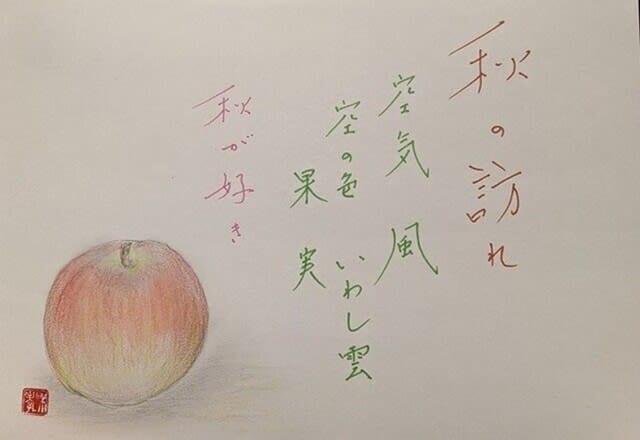 秋の訪れ
空気 風
空の色 いわし雲
果実
秋が好き